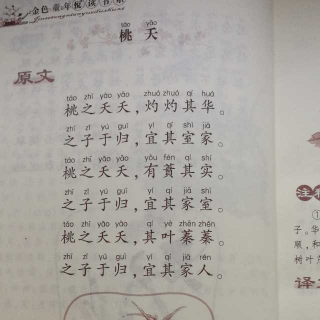 金色童年悦读书系
táo yāo
桃夭
原文
táo zhī yāo yāo zhuó zhuó qí huá
桃之夭夭，灼灼其华。
zhī zǐ yú guī yí qí shì jiā
之子于归，宜其室家。
táo zhī yāo yāo yǒu fén qí shí
桃之夭夭，有蕡其实。
zhī zǐ yú guī yí qí jiā shì
之子于归，宜其家室。
táo zhī yāo yāo qí yè zhēn zhēn
桃之夭夭，其叶蓁蓁。
zhī zǐ yú guī yí qí jiā rén
之子于归，宜其家人。
注
①
子。华
顺，和
树叶茂
译